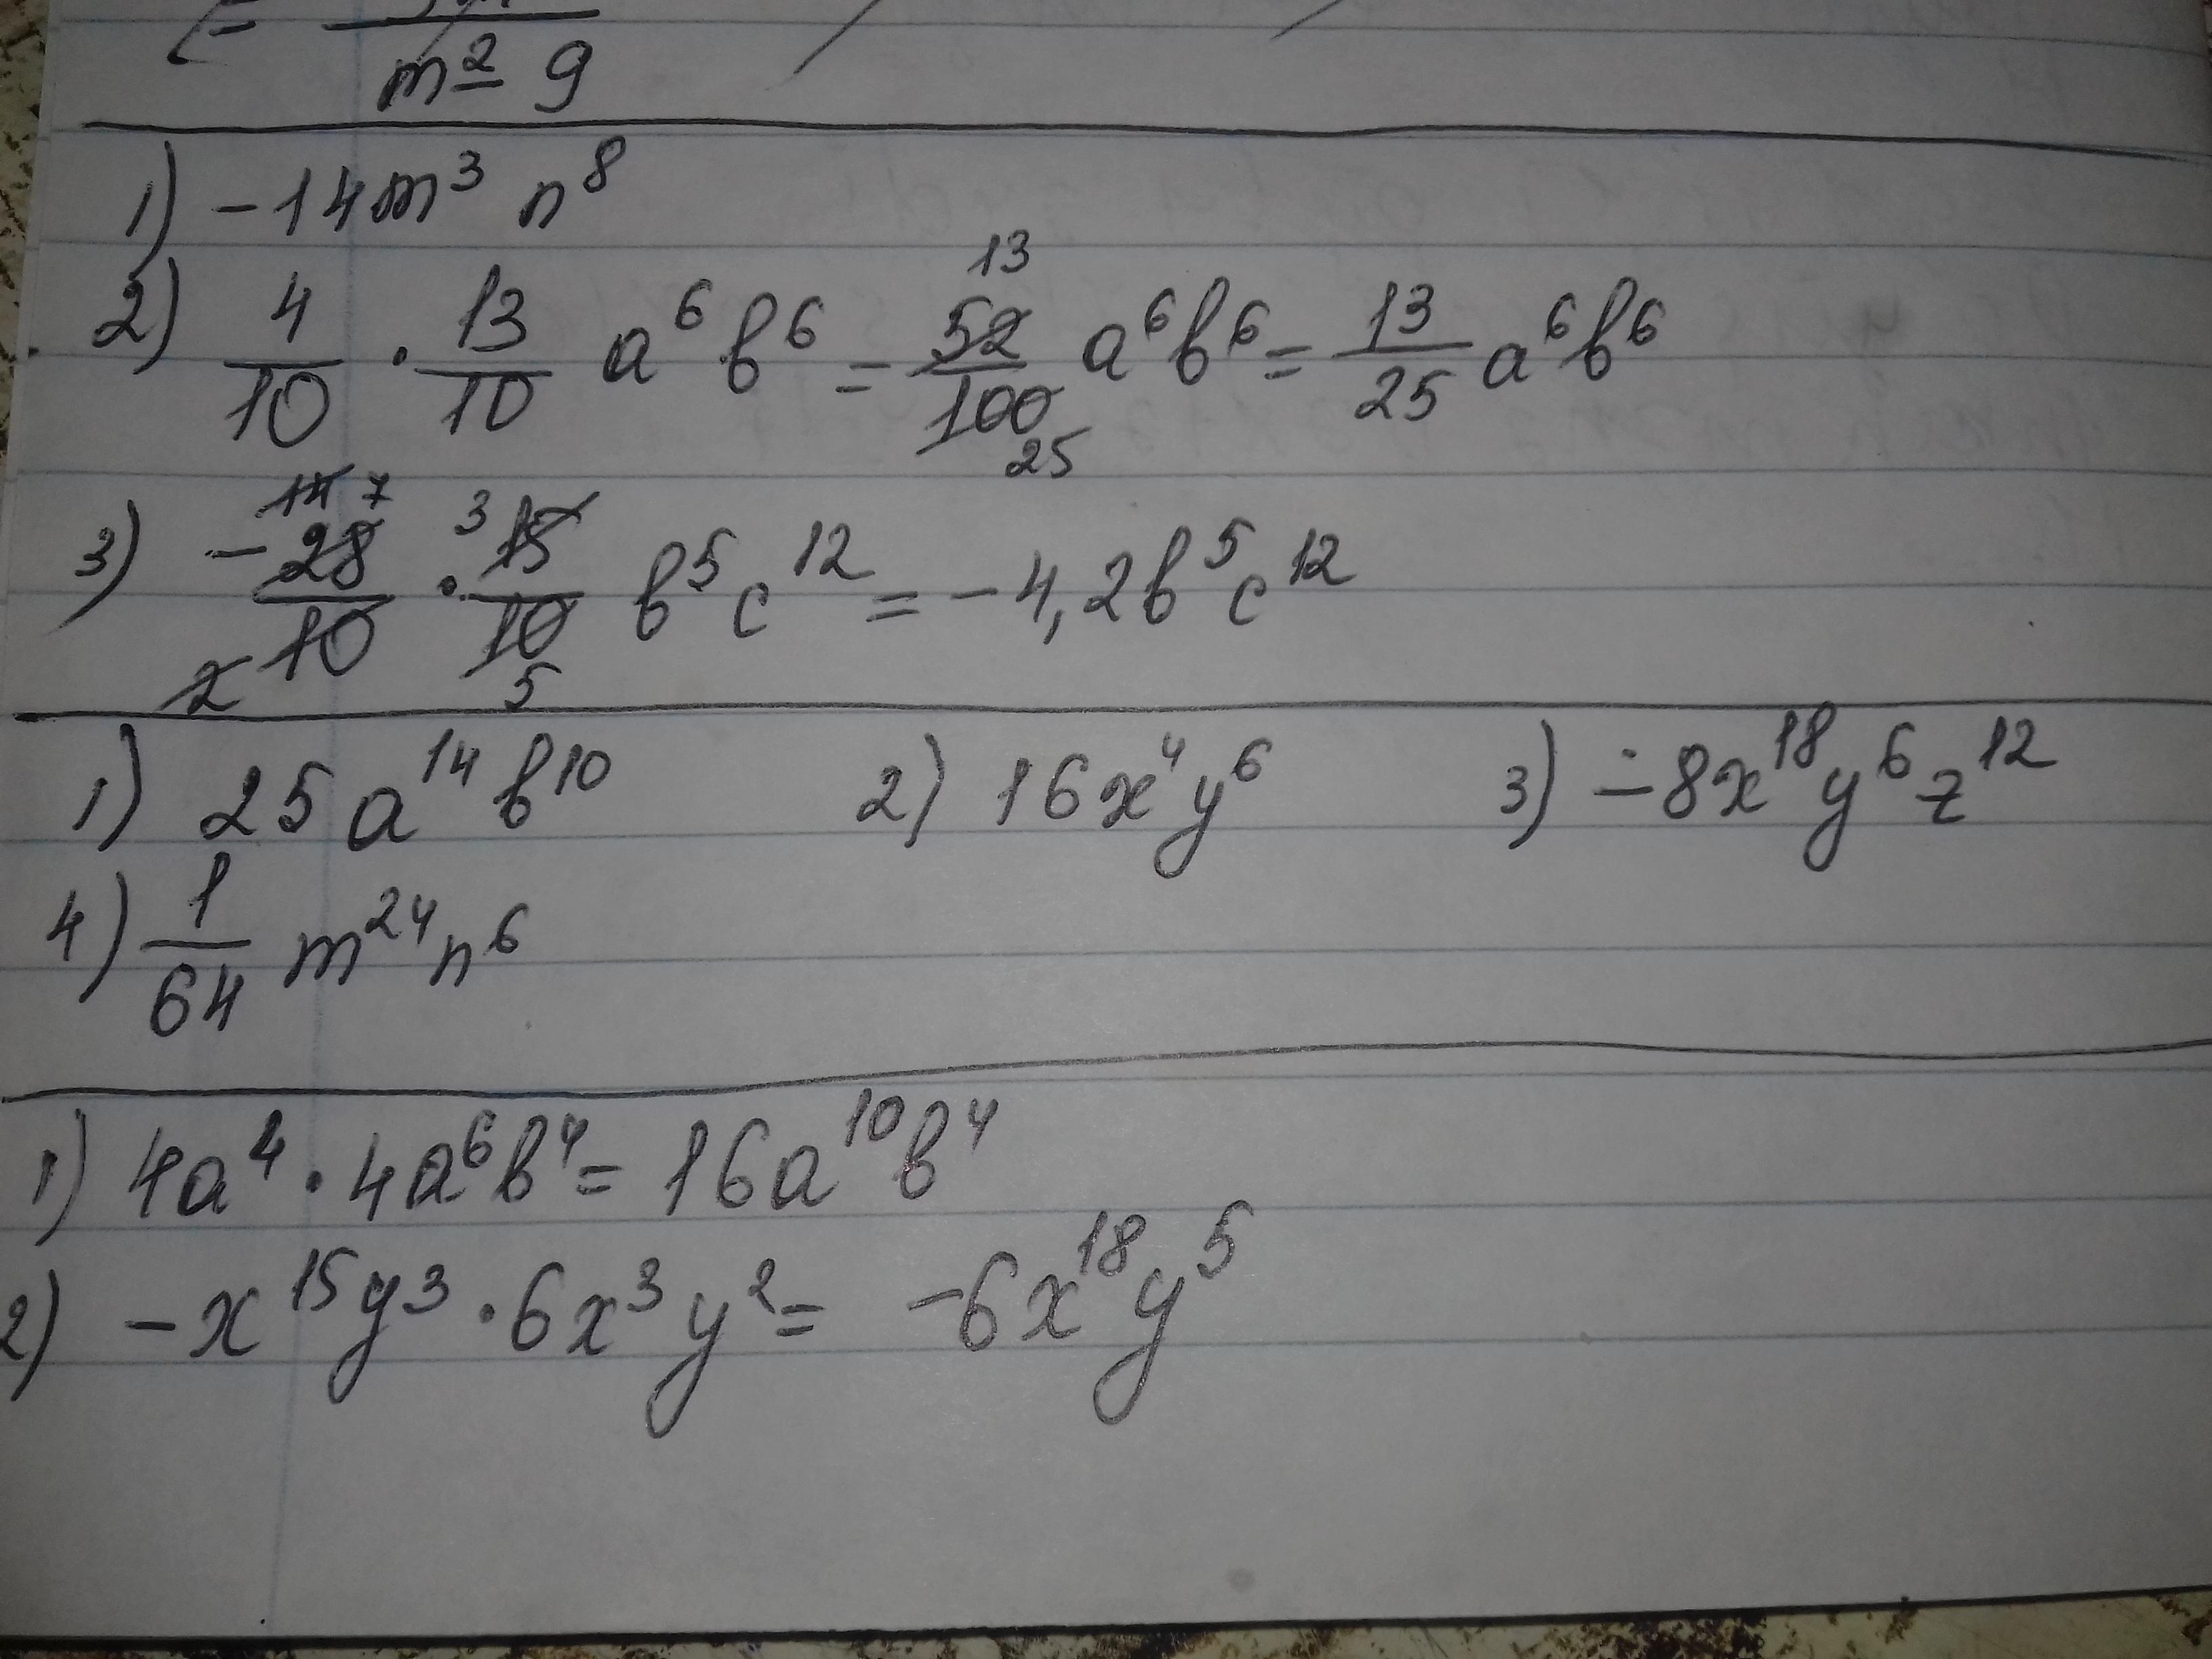 = m² - 9
1) -14m³ n⁸
2) 4/10 · 13/10 a⁶b⁶ = 52/100 a⁶b⁶ = 13/25 a⁶b⁶
13
25
14 7 3
3) -28/10 · 15/10 b⁵c¹² = -4,2b⁵c¹²
2 5
1) 25a¹⁴b¹⁰ 2) 16x⁴y⁶ 3) -8x¹⁸y⁶z¹²
4) 1/64 m²⁴n⁶
1) 4a⁴ · 4a⁶b⁴ = 16a¹⁰b⁴
2) -x¹⁵y³ · 6x³y² = -6x¹⁸y⁵